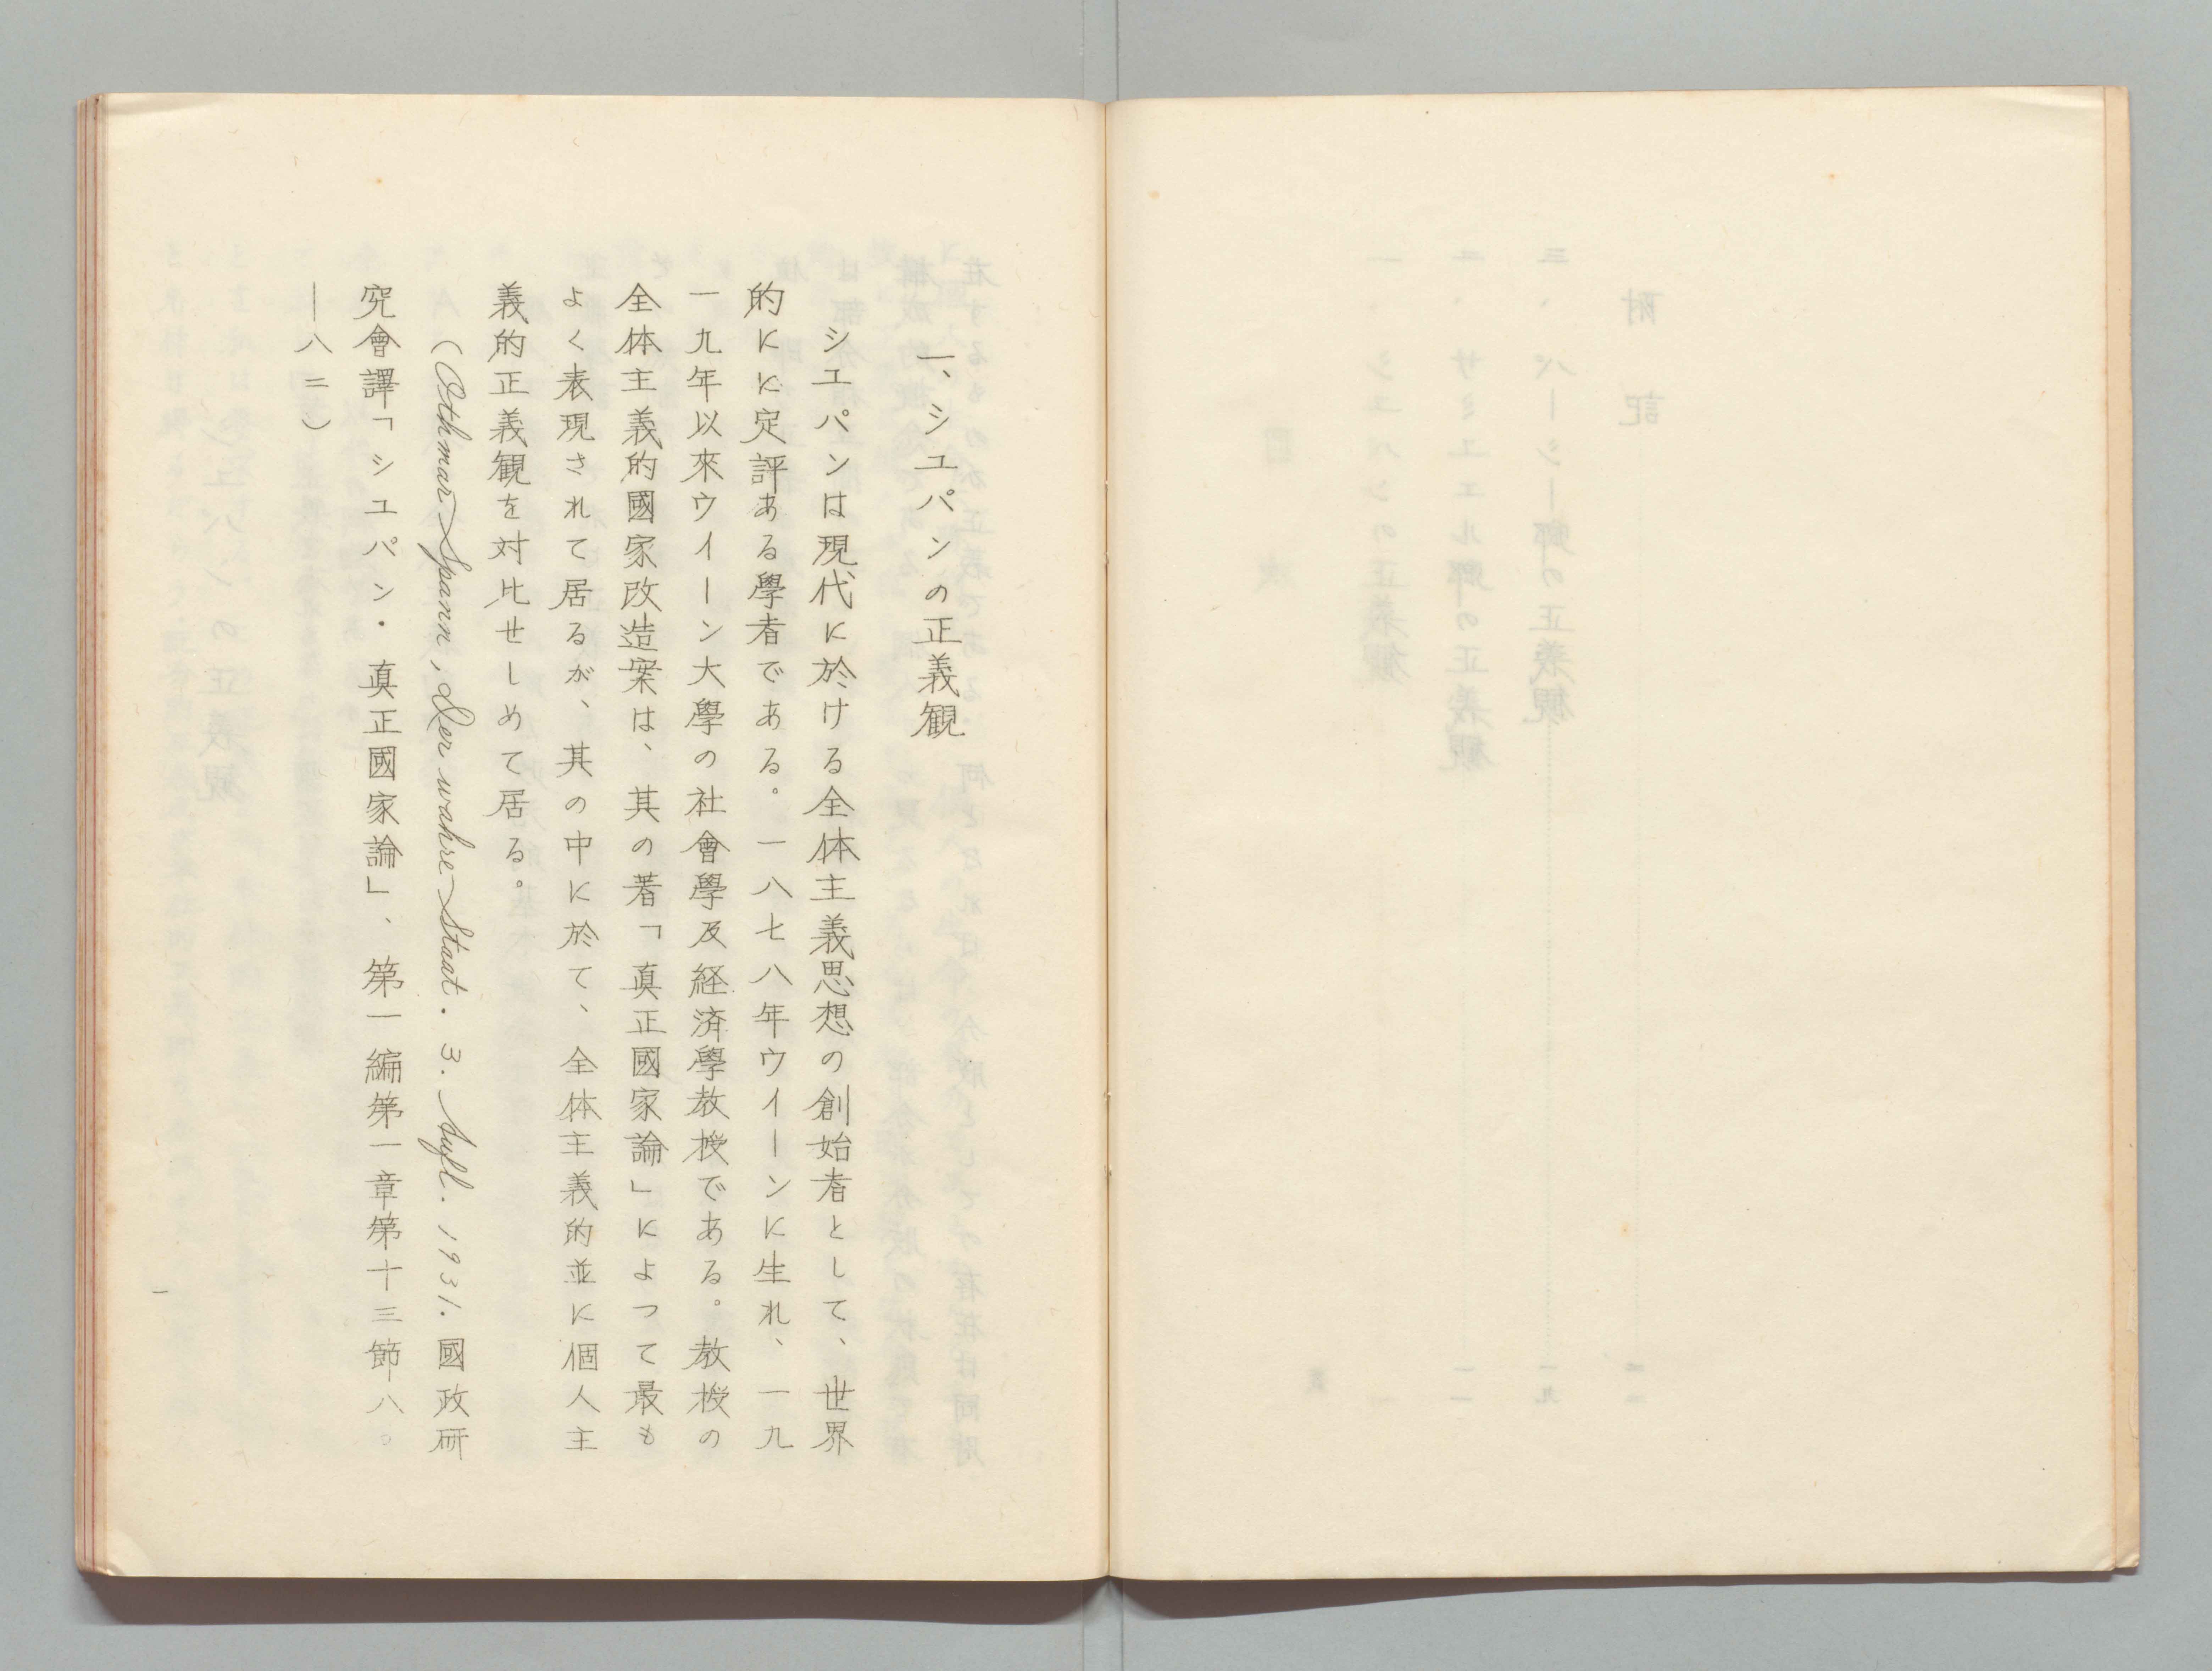 一、シユパンの正義観
シユパンは現代に於ける全体主義思想の創始者として、世界
的にに定評ある學者である。一八七八年ウイーンに生れ、一九
一九年以來ウイーン大學の社會學及経済學教授である。教授の
全体主義的國家改造案は、其の著「真正國家論」によつて最も
よく表現されて居るが、其の中に於て、全体主義的並に個人主
義的正義観を対比せしめて居る。
（Othmar Spann, Der wahre Staat. 3. Aufl. 1931. 國政研
究會譯「シユパン・真正國家論」、第一編第一章第十三節八〇
—八二）